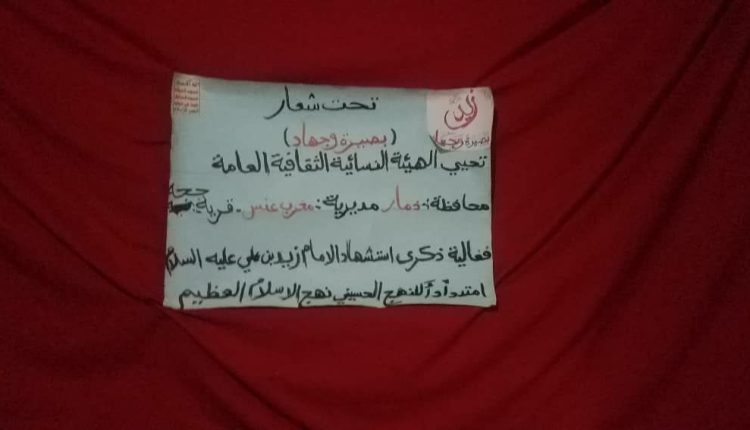 زيد
بصيرة وجهاد
تحت شعار
(بصيرة وجهاد)
تحيي الهيئة النسائية الثقافية العامة
محافظة: ذمار مديرية: مغرب عنس - قرية:
فعالية ذكرى استشهاد الامام زيد بن علي عليه السلام
امتدادأ للنهج الحسيني نهج الاسلام العظيم